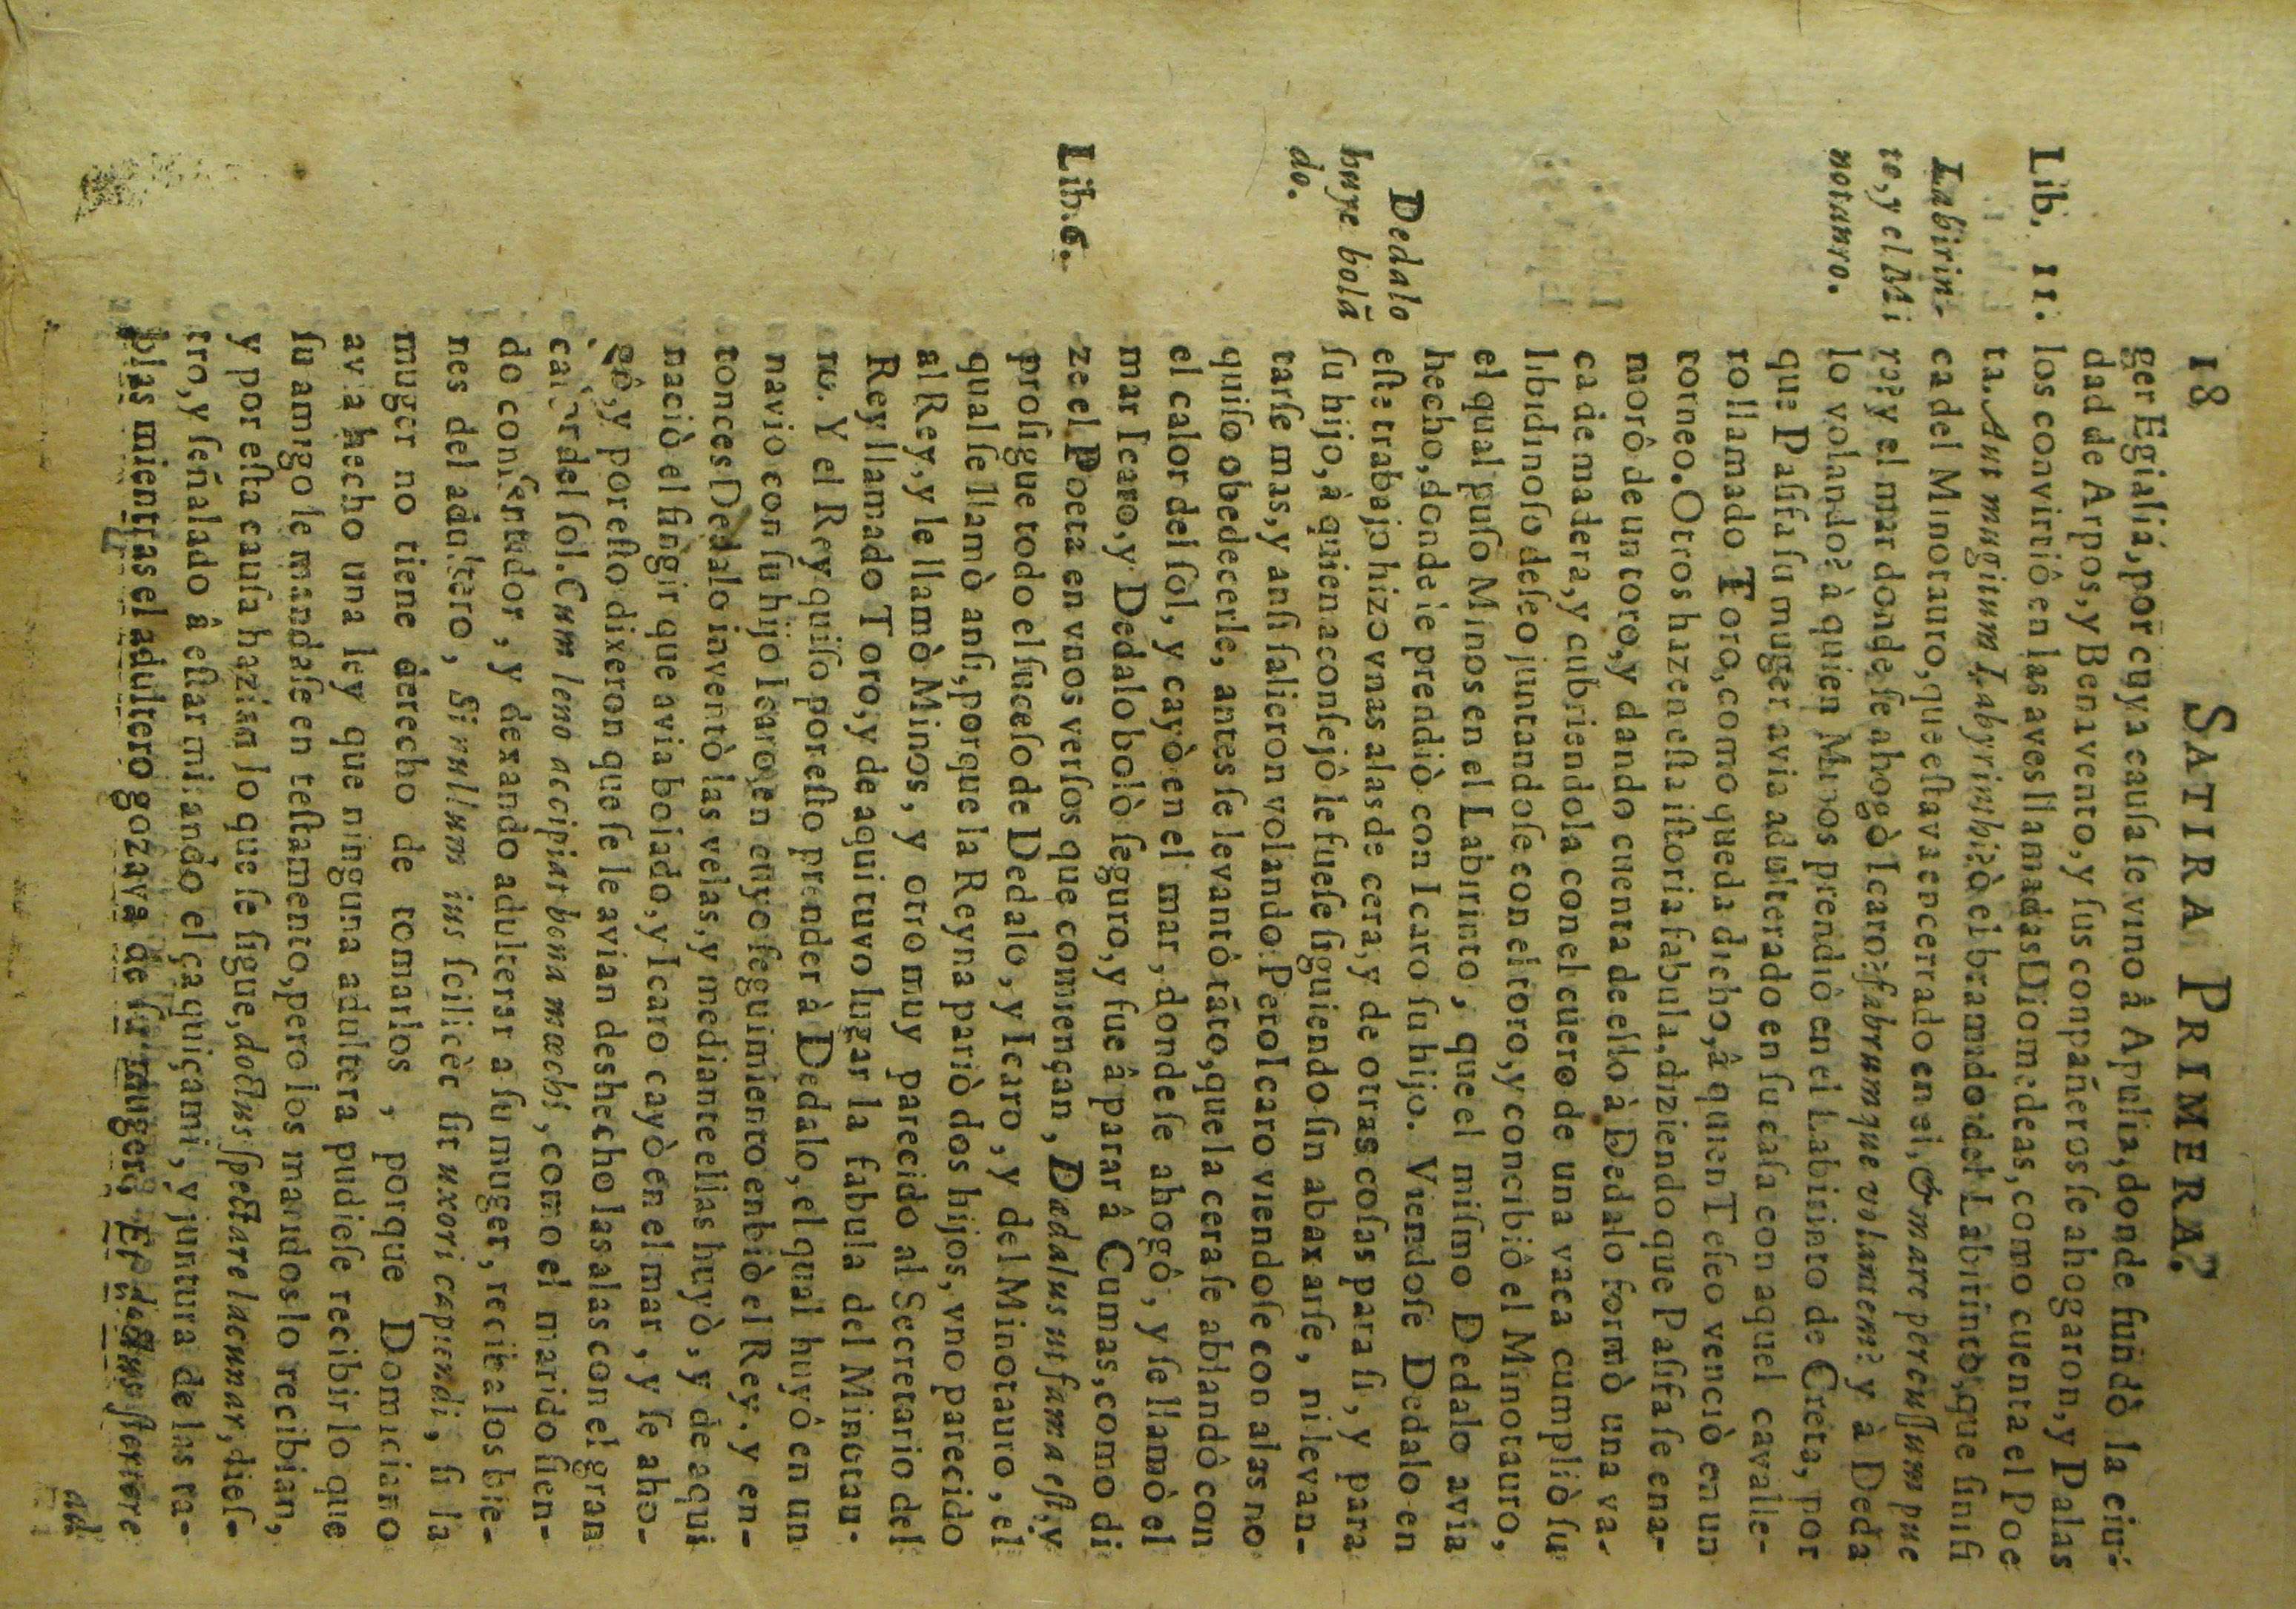 18 SATIRA PRIMERA.
ger Egialia, por cuya causa se vino â Apulia, donde fundò la ciu-
dad de Arpos, y Benavento, y sus conpañeros se ahogaron, y Palas
Lib. 11. los convirtiô en las aves llamadas Diomedeas, como cuenta el Poe
ta. Aut mugitum Labyrinthi? ò el bramido del Labirinto, que finisi
Labirin- ca del Minotauro, que estava encerrado en el, & mare percussum pue
to, y el Mi ro? y el mar donde se ahogò Icaro? fabrumque volantem? y à Deda
notauro. lo volando? à quien Minos prendiò en el Labirinto de Creta, por
que Pasifa su muger avia adulterado en su casa con aquel cavalle-
ro llamado Toro, como queda dicho, â quien Teseo venciò en un
torneo. Otros hazen esta istoria fabula, diziendo que Pasifa se ena-
morô de un toro, y dando cuenta de esto à Dedalo formò una va-
ca de madera, y cubriendola con el cuero de una vaca cumpliò su
libidinoso deseo juntandose con el toro, y concibiô el Minotauro,
el qual puso Minos en el Labirinto, que el mismo Dedalo avia
hecho, donde le prendiò con Icaro su hijo. Viendose Dedalo en
Dedalo este trabajo hizo vnas alas de cera, y de otras cosas para si, y para
huye bolã su hijo, à quien aconsejô le fuese siguiendo sin abaxarse, ni levan-
do. tarse mas, y ansi salieron volando. Pero Icaro viendose con alas no
quiso obedecerle, antes se levantô tãto, que la cera se ablandô con
el calor del sol, y cayò en el mar, donde se ahogô, y se llamò el
mar Icaro, y Dedalo bolò seguro, y fue â parar â Cumas, como di
Lib. 6. ze el Poeta en vnos versos que comiençan, Dædalus ut fama est, y
prosigue todo el suceso de Dedalo, y Icaro, y del Minotauro, el
qual se llamò ansi, porque la Reyna pariò dos hijos, vno parecido
al Rey, y le llamò Minos, y otro muy parecido al Secretario del
Rey llamado Toro, y de aqui tuvo lugar la fabula del Minotau-
ro. Y el Rey quiso por esto prender à Dedalo, el qual huyô en un
navio con su hijo Icaro, en cuyo seguimiento enbiò el Rey, y en-
tonces Dedalo inventò las velas, y mediante ellas huyò, y de aqui
naciò el fingir que avia bolado, y Icaro cayò en el mar, y se aho-
gô, y por esto dixeron que se le avian deshecho las alas con el gran
calor del sol. Cum leno accipiat bona mœchi, como el marido sien-
do consentidor, y dexando adulterar a su muger, reciba los bie-
nes del adultero, Si nullum ius scilicèt sit uxori capiendi, si la
muger no tiene derecho de tomarlos, porque Domiciano
avia hecho una ley que ninguna adultera pudiese recibir lo que
su amigo le mandase en testamento, pero los maridos lo recibian,
y por esta causa hazian lo que se sigue, doctus spectare lacunar, dies-
tro, y señalado â estar mirando el çaquiçami, y juntura de las ta-
blas mientras el adultero gozava de su muger, Et doctus stertere
ad